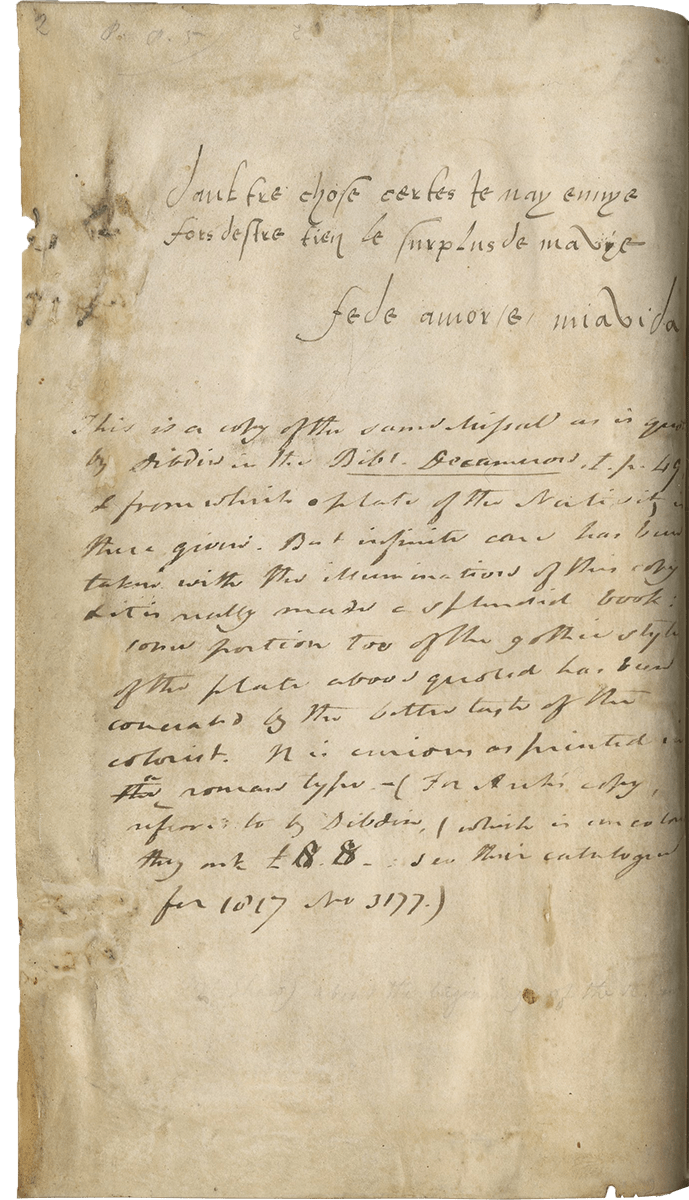 2
daultre chose certes Je nay enuye
fors destre tien le surplus de ma vye
fede amor e mia vida
This is a copy of the same Missal as is
by Dibdin in the Bibl. Decameron, t. p. 49
& from which a plate of the Nativity
there given. But infinite care has been
taken with the illumination of this copy
& it is really made a splendid book:
some portion too of the gothic style
of the plate above quoted has been
concealed by the better taste of the
colorist. It is curious as printed in
the a roman type – ( For Arch's copy,
referred to by Dibdin, ( which is
they ask £8. 8 – . see their catalogue
for 1817 No 3177.)
about the beginning of the